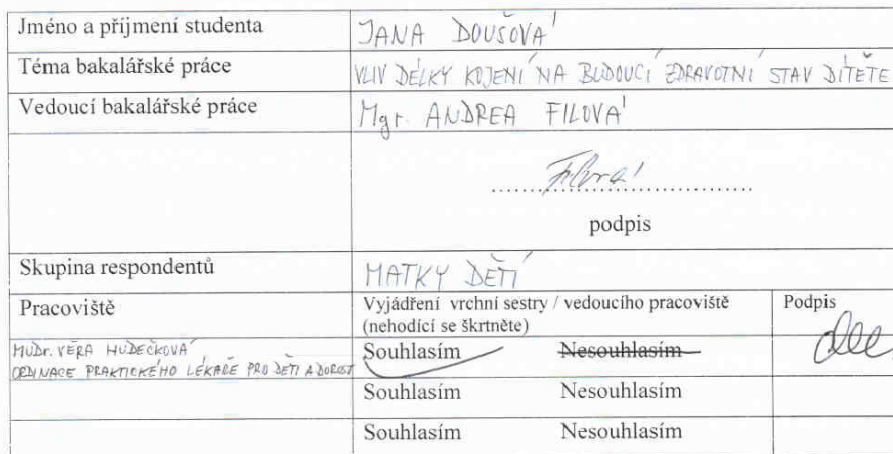 Jméno a příjmení studenta JANA DOUŠOVÁ
Téma bakalářské práce VLIV DÉLKY KOJENÍ NA BUDOUCÍ ZDRAVOTNÍ STAV DÍTĚTE
Vedoucí bakalářské práce Mgr. ANDREA FILOVÁ
Filová
podpis
Skupina respondentů MATKY DĚTÍ
Pracoviště Vyjádření vrchní sestry / vedoucího pracoviště Podpis
(nehodící se škrtněte)
MUDr. VĚRA HUDEČKOVÁ Souhlasím Nesouhlasím
ORDINACE PRAKTICKÉHO LÉKAŘE PRO DĚTI A DOROST
Souhlasím Nesouhlasím
Souhlasím Nesouhlasím